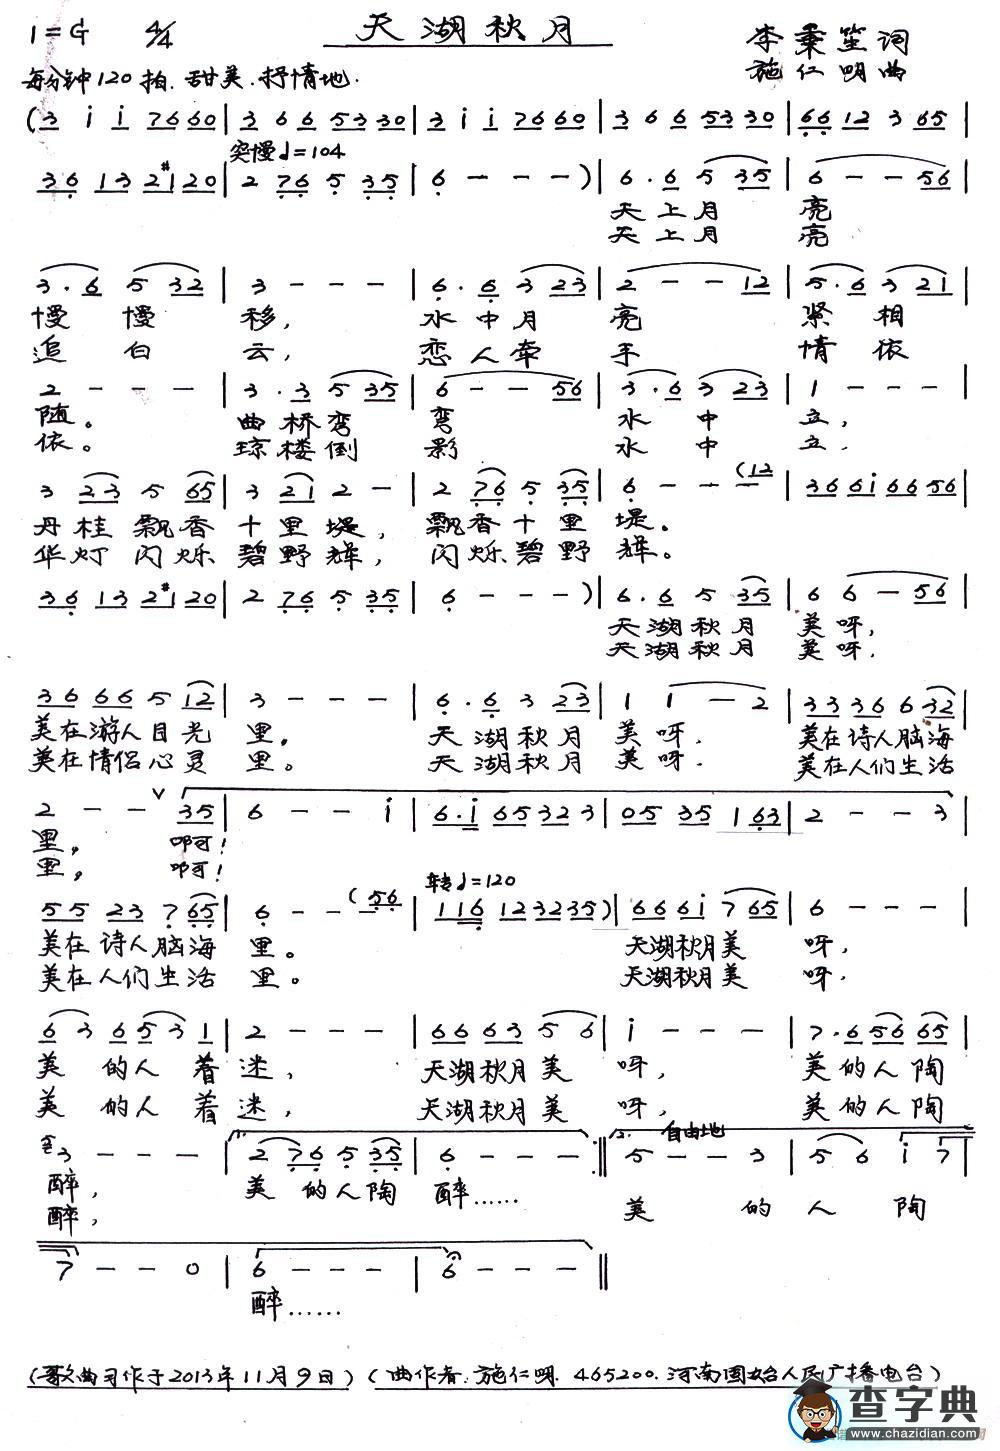 1=G 4/4 天湖秋月 李秉笙词
施仁明曲
每分钟120拍.甜美.抒情地.
(3 i i 7660 | 3 6 6 5330 | 3 i i 7660 | 3 6 6 5330 | 6612 3 65 |
突慢♩=104
36 13 2#120 | 2 76 5 35 | 6 - - - ) | 6. 6 5 35 | 6 - - 56 |
天上月 亮
天上月 亮
3. 6 5 32 | 3 - - - | 6. 6 3 23 | 2 - - 12 | 5. 6 3 21 |
慢慢 移, 水中月 亮 紧相
追白 云, 恋人牵 手 情依
2 - - - | 3. 3 5 35 | 6 - - 56 | 3. 6 3 23 | 1 - - - |
随。 曲桥弯 弯 水 中 立,
依。 琼楼倒 影 水 中 立.
3 23 5 65 | 3 21 2 - | 2 76 5 35 | 6 - - (12 | 366i6656 |
丹桂飘香 十里堤, 飘香十里 堤。
华灯闪烁 碧野辉, 闪烁碧野 辉。
36 13 2#120 | 2 76 5 35 | 6 - - - ) | 6. 6 5 35 | 6 6 - 56 |
天湖秋月 美呀,
天湖秋月 美呀.
36 66 5 12 | 3 - - - | 6. 6 3 23 | 1 1 - 2 | 3336 6 32 |
美在游人目光 里。 天湖秋月 美呀. 美在诗人脑海
美在情侣心灵 里。 天湖秋月 美呀. 美在人们生活
2 - - ∨ 35 | 6 - - i | 6.i 65323 | 05 35 1 63 | 2 - - 3 |
里, 啊!
里, 啊!
转♩=120
55 23 7 65 | 6 - - (56 | 116 123235) | 666i 7 65 | 6 - - - |
美在诗人脑海 里。 天湖秋月美 呀,
美在人们生活 里。 天湖秋月美 呀.
6 3 6 5 3 1 | 2 - - - | 6663 5 6 | i - - - | 7. 6 56 65 |
美 的人 着 迷, 天湖秋月美 呀, 美的人陶
美 的人 着 迷, 天湖秋月美 呀, 美的人陶
1. 2. 自由地
3 - - - | 2 76 5 35 | 6 - - - :‖ 5 - - 3 | 5 6 i 7 |
醉, 美 的人陶 醉…… 美 的 人 陶
醉,
7 - - 0 | 6 - - - | 6 - - - ‖
醉……
(歌曲写作于2013年11月9日) (曲作者.施仁明.465200.河南固始人民广播电台)
查字典
www.chazidian.com